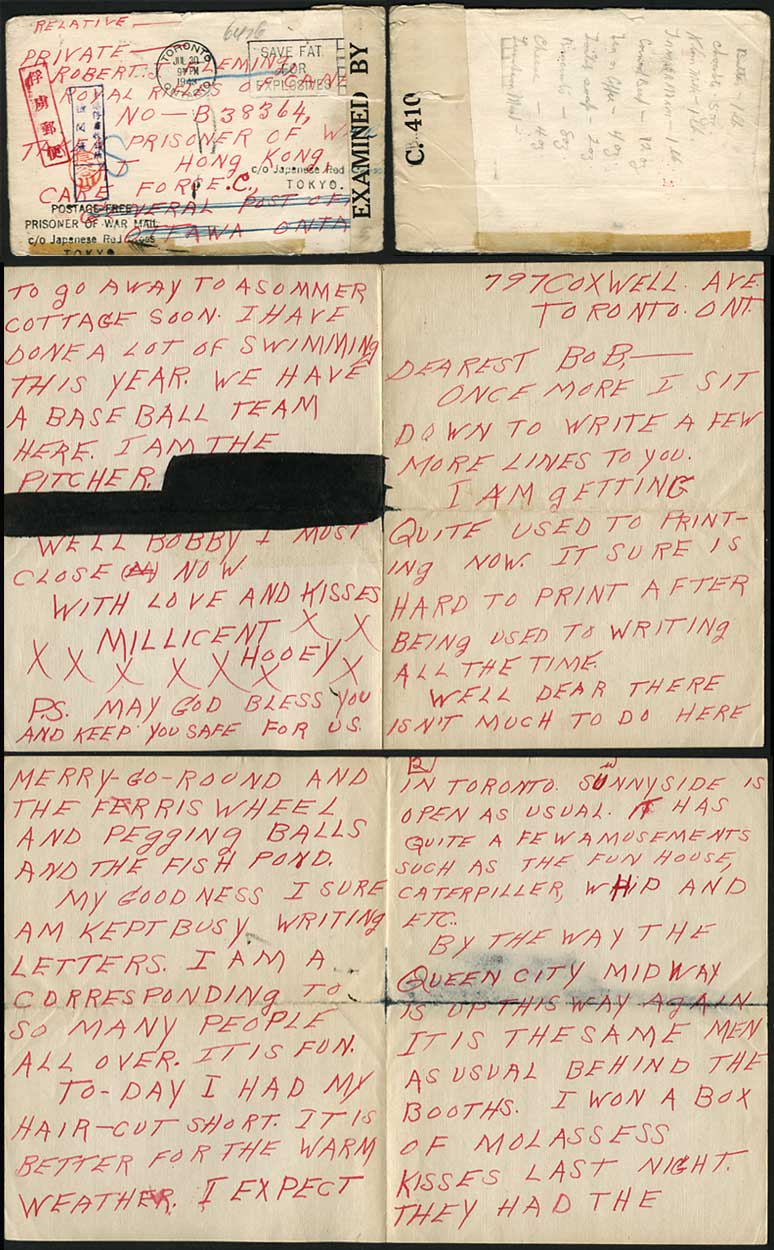 RELATIVE —
6476
PRIVATE —
ROBERT J. FLEMING,
ROYAL RIFLES OF CANADA
NO — B 38364,
PRISONER OF WAR
HONG KONG,
CARE FORCE. C.,
GENERAL POST OF
OTTAWA ONTA
TORONTO
JUL 30
9 PM
1943
ONTARIO
SAVE FAT
FOR
EXPLOSIVES
俘虜郵便
c/o Japanese Red
TOKYO.
POSTAGE FREE
PRISONER OF WAR MAIL
c/o Japanese Red Cross
TOKYO
EXAMINED BY
C. 410
797 COXWELL. AVE.
TORONTO. ONT.
DEAREST BOB, —
ONCE MORE I SIT
DOWN TO WRITE A FEW
MORE LINES TO YOU.
I AM gETTING
QUITE USED TO PRINT-
ING NOW. IT SURE IS
HARD TO PRINT AFTER
BEING USED TO WRITING
ALL THE TIME.
WELL DEAR THERE
ISN'T MUCH TO DO HERE
2
IN TORONTO. SUNNYSIDE IS
OPEN AS USUAL. IT HAS
QUITE A FEW AMUSEMENTS
SUCH AS THE FUN HOUSE,
CATERPILLER, WHIP AND
ETC..
BY THE WAY THE
QUEEN CITY MIDWAY
IS UP THIS WAY AGAIN
IT IS THE SAME MEN
AS USUAL BEHIND THE
BOOTHS. I WON A BOX
OF MOLASSESS
KISSES LAST NIGHT.
THEY HAD THE
MERRY-GO-ROUND AND
THE FERRIS WHEEL
AND PEGGING BALLS
AND THE FISH POND.
MY GOODNESS I SURE
AM KEPT BUSY WRITING
LETTERS. I AM A
CORRESPONDING TO
SO MANY PEOPLE
ALL OVER. IT IS FUN.
TO-DAY I HAD MY
HAIR-CUT SHORT. IT IS
BETTER FOR THE WARM
WEATHER. I EXPECT
TO GO AWAY TO A SOMMER
COTTAGE SOON. I HAVE
DONE A LOT OF SWIMMING
THIS YEAR. WE HAVE
A BASE BALL TEAM
HERE. I AM THE
PITCHER.
WELL BOBBY I MUST
CLOSE NOW
WITH LOVE AND KISSES
MILLICENT X X
HOOEY
X X X X X X X
P.S. MAY GOD BLESS YOU
AND KEEP YOU SAFE FOR US.